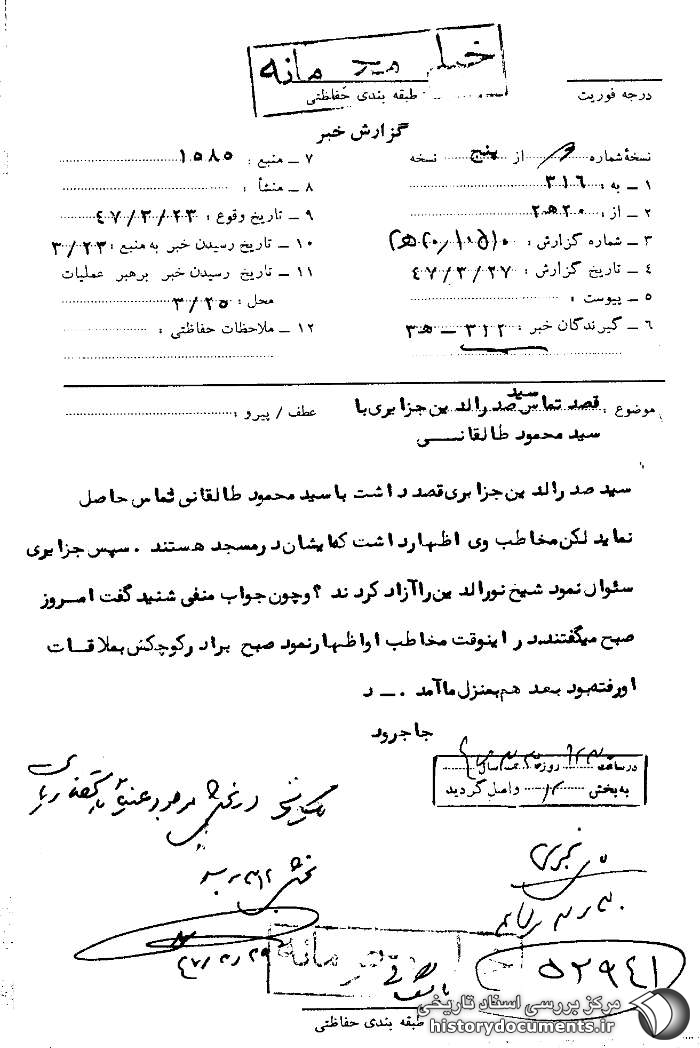 خیلی محرمانه
درجه فوریت
طبقه بندی حفاظتی
گزارش خبر
نسخهٔ شماره ۲ از پنج نسخه
۱ ـ به : ۳۱۶
۲ ـ از : ۲۰ ه‍ ۲
۳ ـ شماره گزارش :
۴ ـ تاریخ گزارش : ۴۷/۳/۲۷
۵ ـ پیوست :
۶ ـ گیرندگان خبر : ۳۱۲ ـ ه‍ ۳
۷ ـ منبع : ۱۵۸۵
۸ ـ منشأ :
۹ ـ تاریخ وقوع : ۴۷/۳/۲۳
۱۰ ـ تاریخ رسیدن خبر به منبع : ۳/۲۳
۱۱ ـ تاریخ رسیدن خبر برهبر عملیات
محل : ۳/۲۵
۱۲ ـ ملاحظات حفاظتی :
موضوع : قصد تماس سید صدرالدین جزایری با
سید محمود طالقانی
عطف / پیرو :
سید صدرالدین جزایری قصد داشت با سید محمود طالقانی تماس حاصل
نماید لکن مخاطب وی اظهار داشت که ایشان در مسجد هستند . سپس جزایری
سئوال نمود شیخ نورالدین را آزاد کردند ؟ و چون جواب منفی شنید گفت امروز
صبح میگفتند . در اینوقت مخاطب او اظهار نمود صبح برادر کوچکش بملاقات
او رفته بود بعد هم بمنزل ما آمد . ـ د
جاجرود
در ساعت روز سال
به بخش واصل گردید
بخش ۳۱۲
۵۲۹۴۱
طبقه بندی حفاظتی
مرکز بررسی اسناد تاریخی
historydocuments.ir